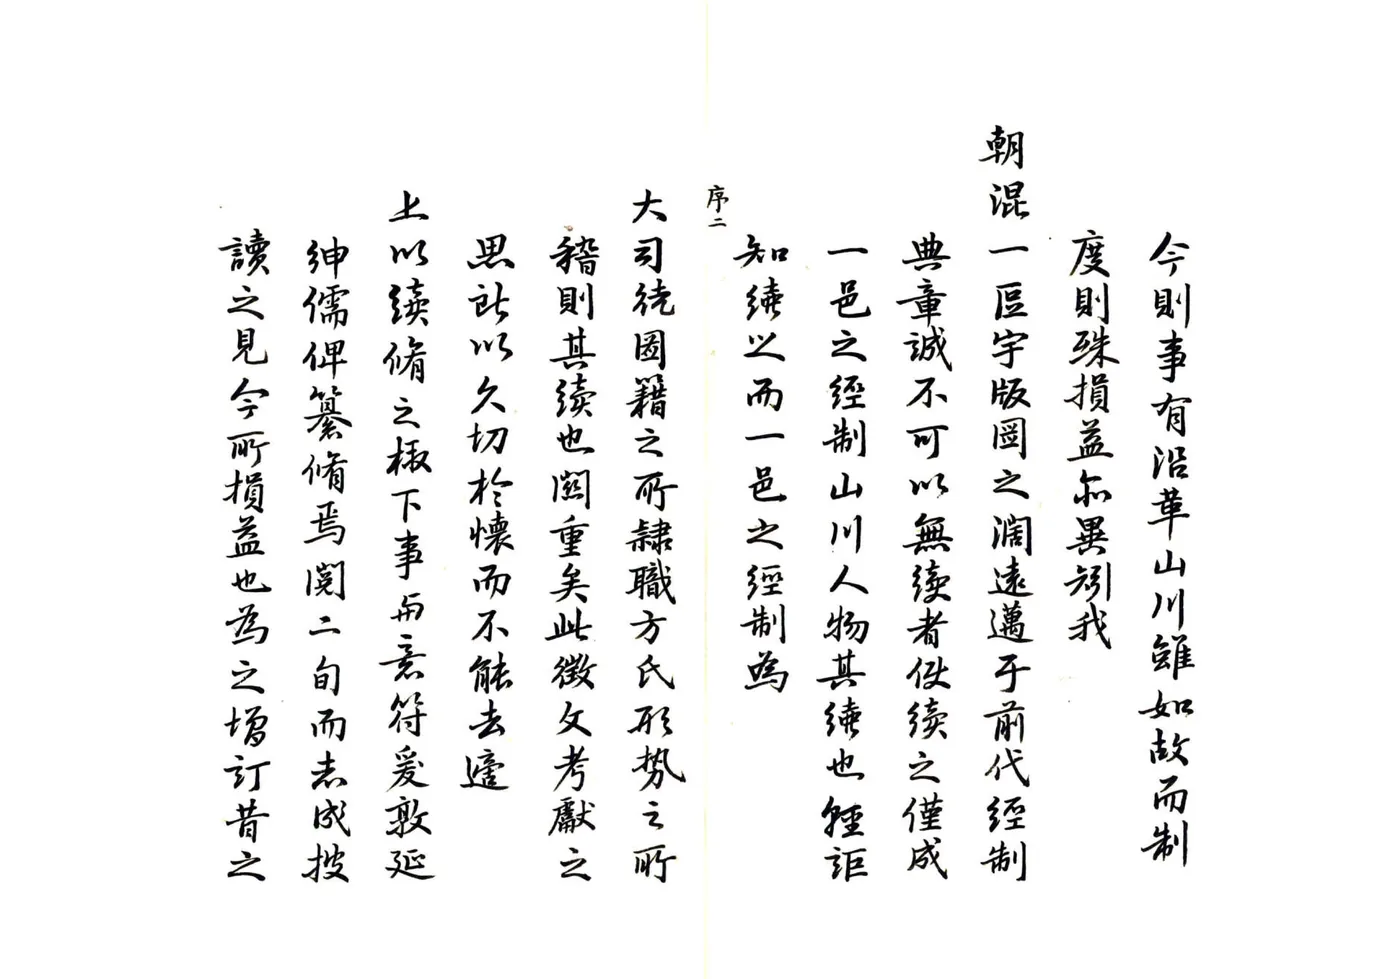 今則事有沿革山川雖如故而制
度則殊損益亦異矧我
朝混一區宇版圖之濶遠邁于前代經制
典章誠不可以無續者使續之僅成
一邑之經制山川人物其續也輕詎
知續之而一邑之經制為
序二
大司徒圖籍之所隸職方氏形勢之所
稽則其續也關重矣此徵文考獻之
思所以久切於懷而不能去適
上以續脩之檄下事與意符爰敦延
紳儒俾纂脩焉閱二旬而志成披
讀之見今所損益也為之增訂昔之